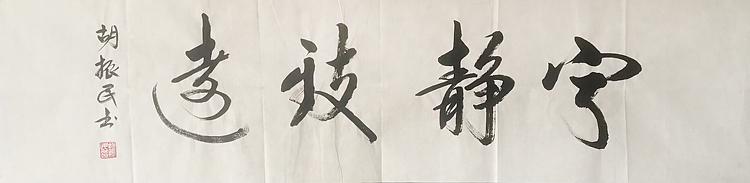 宁静致远
胡振民书